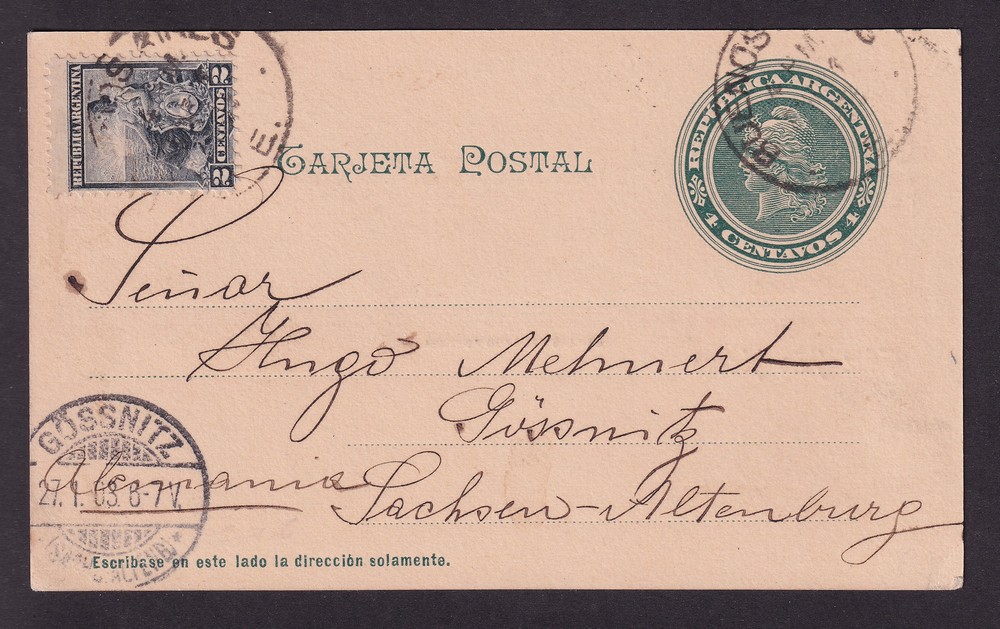 REPUBLICA ARGENTINA
2 CENTAVOS 2
TARJETA POSTAL
BUENOS
REPUBLICA ARGENTINA
4 CENTAVOS 4
Señor
Hugo Mehnert
Gössnitz
Alemania Sachsen-Altenburg
GÖSSNITZ
27.1.03.6-7V.
Escribase en este lado la dirección solamente.